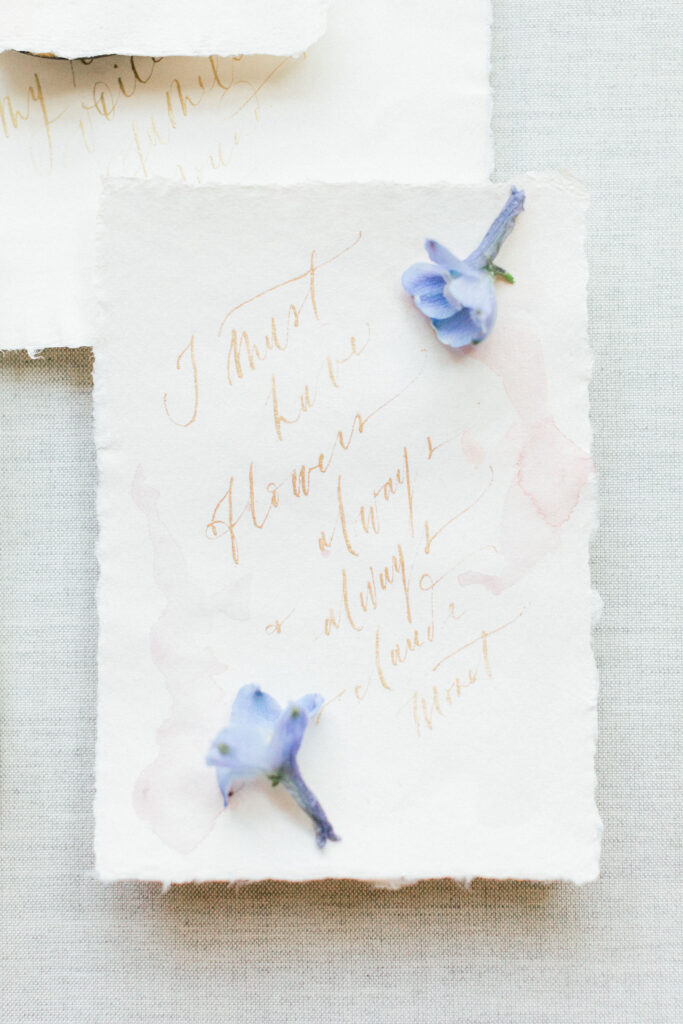 my
voice
I must
have
flowers
always
& always
claude
Monet